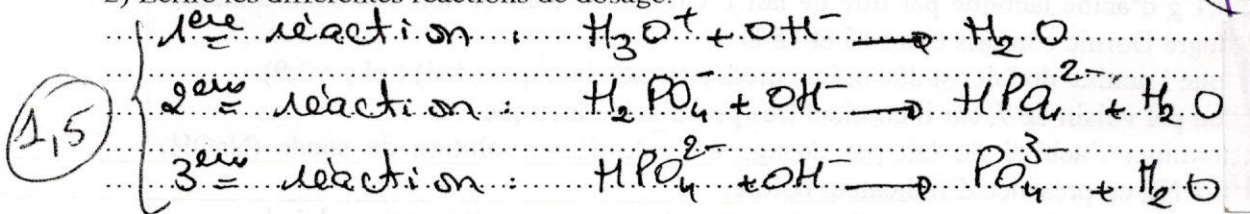 2) Ecrire les différentes réactions de dosage.
1ère réaction : H₃O⁺ + OH⁻ → H₂O
2ème réaction : H₂PO₄⁻ + OH⁻ → HPO₄²⁻ + H₂O
1,5
3ème réaction : HPO₄²⁻ + OH⁻ → PO₄³⁻ + H₂O